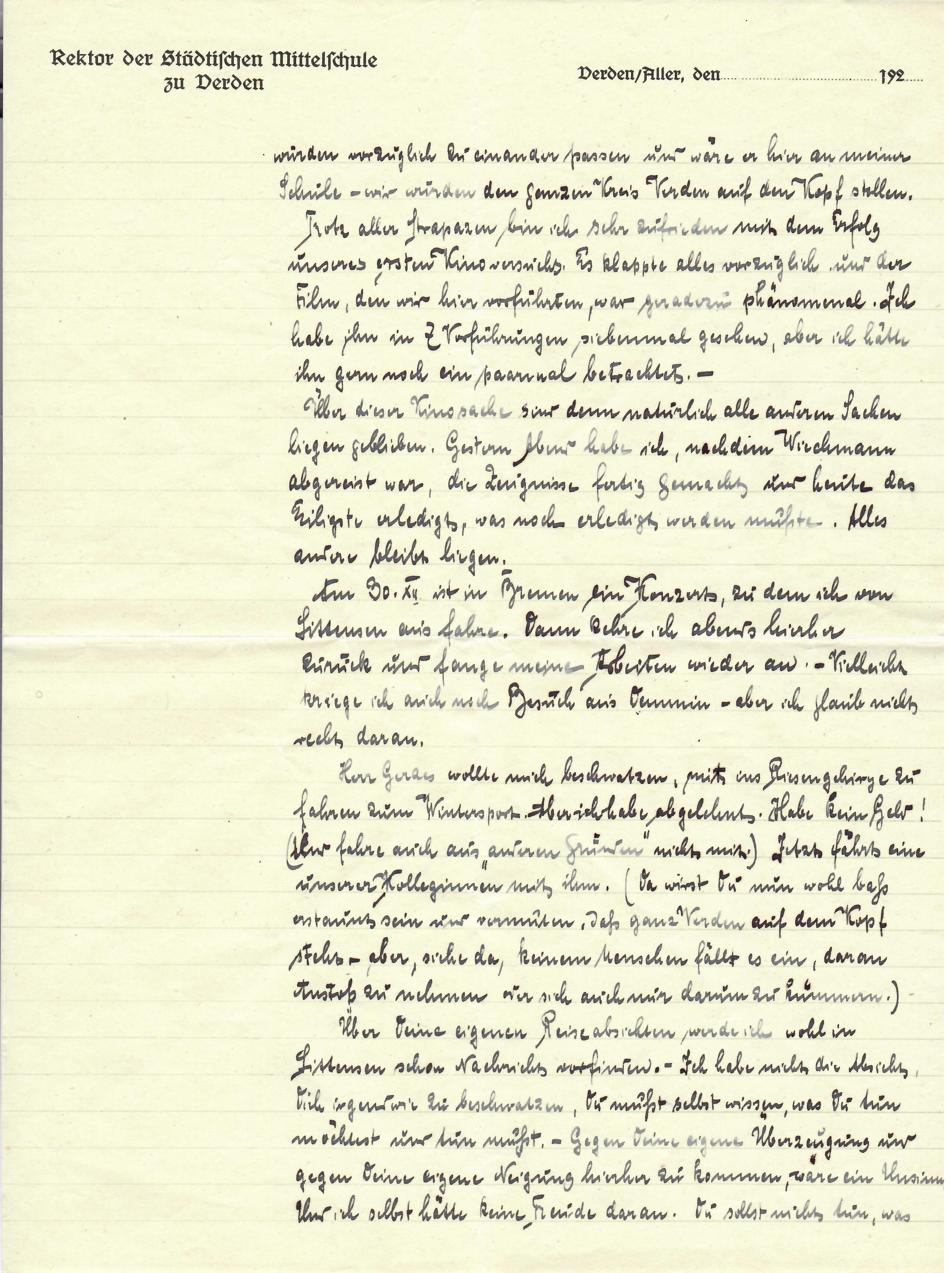 Rektor der Städtischen Mittelschule
zu Verden
Verden/Aller, den 192
würden vorzüglich zu einander passen und wäre er hier an meiner
Schule – wir würden den ganzen Kreis Verden auf den Kopf stellen.
Trotz aller Strapazen bin ich sehr zufrieden mit dem Erfolg
unseres ersten Kinoversuchs. Es klappte alles vorzüglich und der
Film, den wir hier vorführten, war geradezu phänomenal. Ich
habe ihn in 7 Vorführungen siebenmal gesehen, aber ich hätte
ihn gern noch ein paarmal betrachtet. –
Über dieser Kinosache sind denn natürlich alle anderen Sachen
liegen geblieben. Gestern Abend habe ich, nachdem Wiechmann
abgereist war, die Zeugnisse fertig gemacht und heute das
Eiligste erledigt, was noch erledigt werden mußte. Alles
andere bleibt liegen.
Am 30. XII ist in Bremen ein Konzert, zu dem ich von
Sittensen aus fahre. Dann kehre ich abends hierher
zurück und fange meine Arbeiten wieder an. – Vielleicht
kriege ich auch noch Besuch aus Demmin – aber ich glaub nicht
recht daran.
Herr Gerdes wollte mich beschwatzen, mit ins Riesengebirge zu
fahren zum Wintersport. Aber ich habe abgelehnt. Habe kein Geld!
(Und fahre auch aus „anderen Gründen" nicht mit.) Jetzt fährt eine
unserer Kolleginnen mit ihm. (Da wirst Du nun wohl baß
erstaunt sein und vermuten, daß ganz Verden auf dem Kopf
steht – aber, siehe da, keinem Menschen fällt es ein, daran
Anstoß zu nehmen oder sich auch nur darum zu kümmern.)
Über Deine eigenen Reiseabsichten werde ich wohl in
Sittensen schon Nachricht vorfinden. – Ich habe nicht die Absicht,
Dich irgendwie zu beschwatzen, Du mußt selbst wissen, was Du tun
möchtest und tun mußt. – Gegen Deine eigene Überzeugung und
gegen Deine eigene Neigung hierher zu kommen, wäre ein Unsinn
Und ich selbst hätte keine Freude daran. Du sollst nichts tun, was